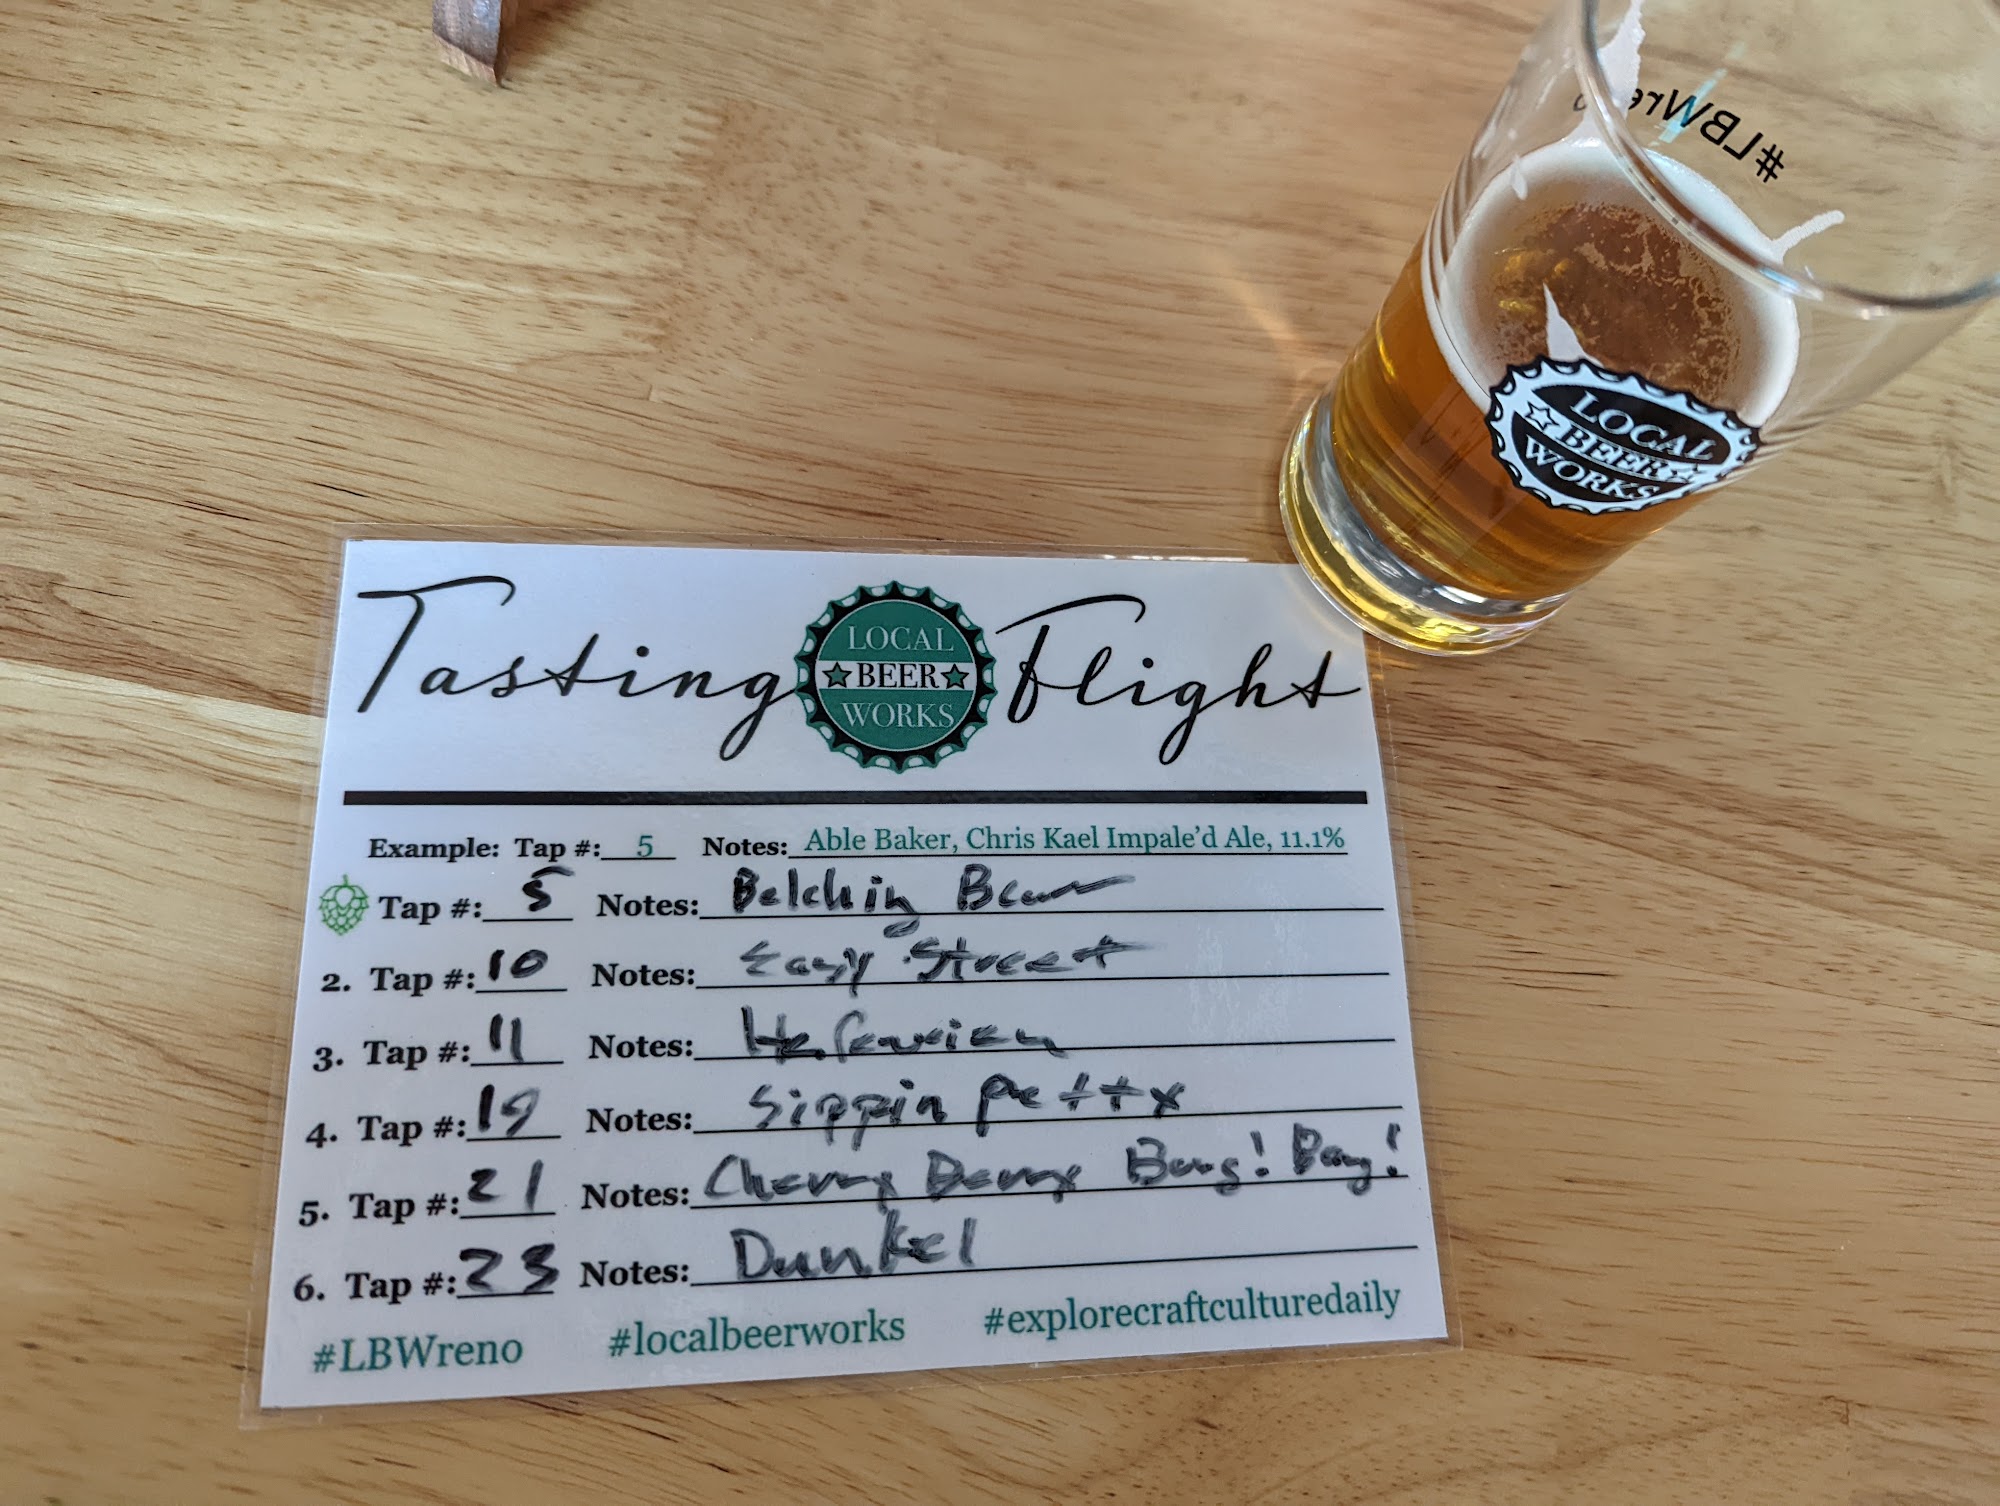 #LBWre
LOCAL
BEER
WORKS
Tasting LOCAL BEER WORKS Flight
Example: Tap #: 5 Notes: Able Baker, Chris Kael Impale'd Ale, 11.1%
Tap #: 5 Notes: Belching Beaver
2. Tap #: 10 Notes: Easy Street
3. Tap #: 11 Notes: Hefeweizen
4. Tap #: 19 Notes: Sippin Pretty
5. Tap #: 21 Notes: Cherry Berry Bang! Bang!
6. Tap #: 23 Notes: Dunkel
#LBWreno #localbeerworks #explorecraftculturedaily